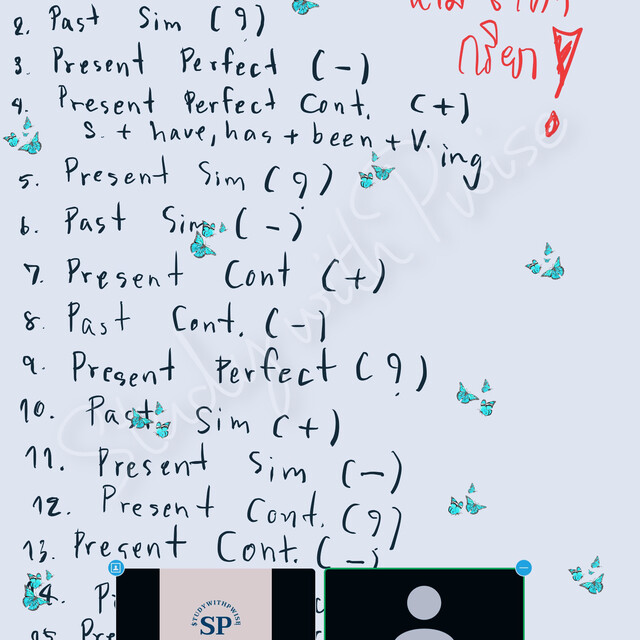 2. Past Sim (?)
กริยา!
3. Present Perfect (-)
4. Present Perfect Cont. (+)
S. + have, has + been + V. ing
5. Present Sim (?)
6. Past Sim (-)
7. Present Cont (+)
8. Past Cont. (-)
9. Present Perfect (?)
10. Past Sim (+)
11. Present Sim (-)
12. Present Cont. (?)
13. Present Cont. (-)
14.
15. Pre
Study with Pwise
STUDYWITHPWISH
SP